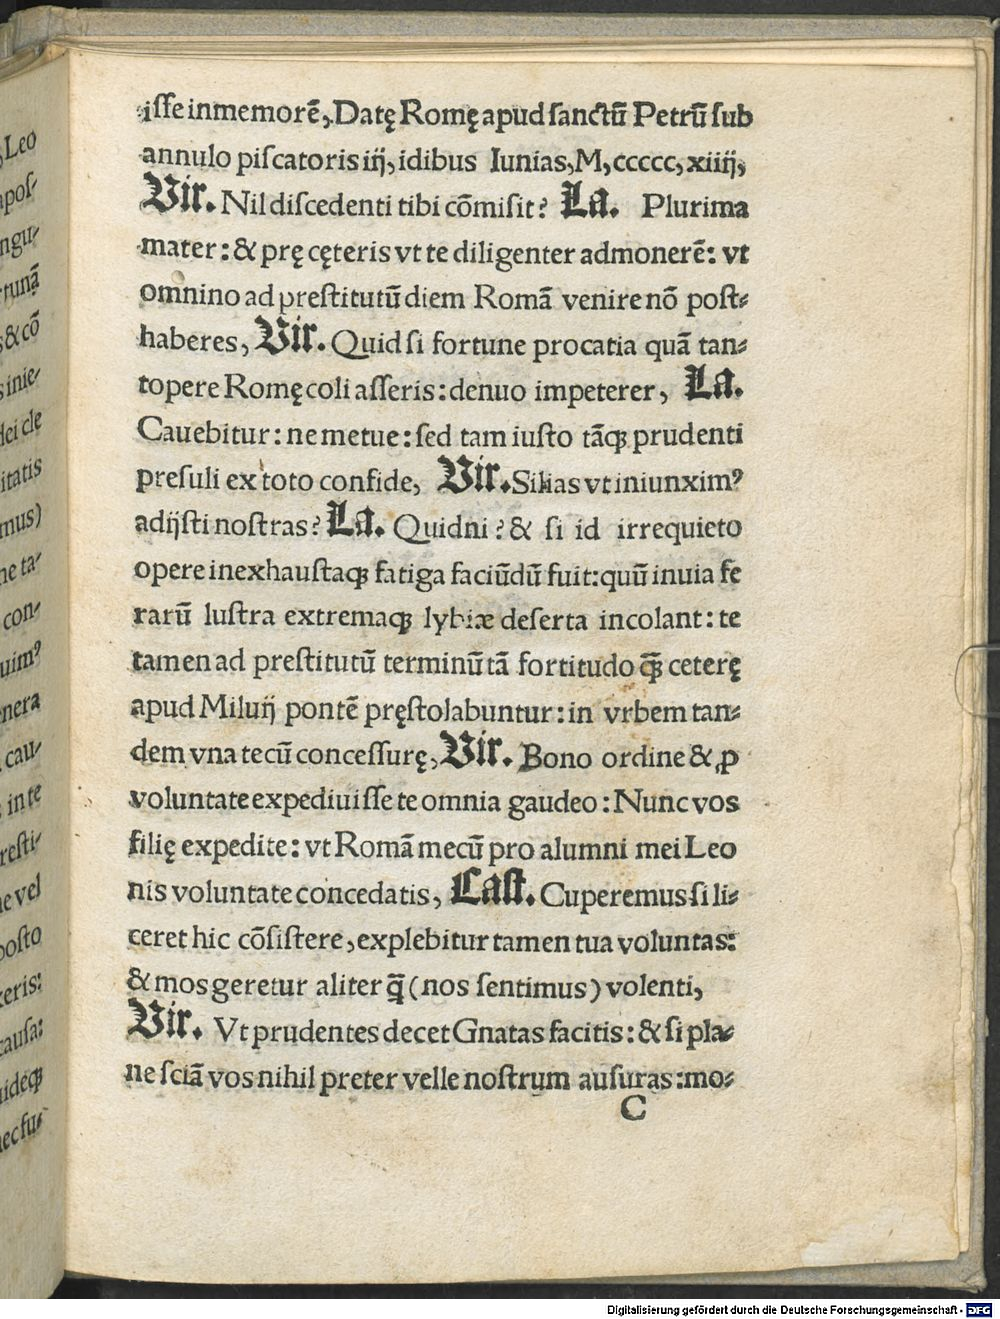 Leo
apos-
ngu-
rtunā
s&cō
s inie-
dei cle
itatis
mus)
ne ta-
con-
uim⁹
nera
cau-
in te
resti-
ne vel
posto
teris:
causa:
uideqꝫ
nec fu-
isse inmemorē, Datę Romę apud sanctū Petrū sub
annulo piscatoris iij, idibus Iunias, M, ccccc, xiiij,
Vir. Nil discedenti tibi cōmisit? La. Plurima
mater: & prę cęteris vt te diligenter admonerē: vt
omnino ad prestitutū diem Romā venire nō post-
haberes, Vir. Quid si fortune procatia quā tan-
topere Romę coli asseris: denuo impeterer, La.
Cauebitur: ne metue: sed tam iusto tāqꝫ prudenti
presuli ex toto confide, Vir. Silias vt iniunxim⁹
adijsti nostras? La. Quidni? & si id irrequieto
opere inexhaustaqꝫ fatiga faciūdū fuit: quū inuia fe
rarū lustra extremaqꝫ lybiæ deserta incolant: te
tamen ad prestitutū terminū tā fortitudo qꝫ̄ ceterę
apud Miluij pontē pręstolabuntur: in vrbem tan-
dem vna tecū concessurę, Vir. Bono ordine & ꝓ
voluntate expediuisse te omnia gaudeo: Nunc vos
filię expedite: vt Romā mecū pro alumni mei Leo
nis voluntate concedatis, Cast. Cuperemus si li-
ceret hic cōsistere, explebitur tamen tua voluntas:
& mos geretur aliter q̄ (nos sentimus) volenti,
Vir. Vt prudentes decet Gnatas facitis: & si pla-
ne sciā vos nihil preter velle nostrum ausuras: mo-
C
Digitalisierung gefördert durch die Deutsche Forschungsgemeinschaft - DFG